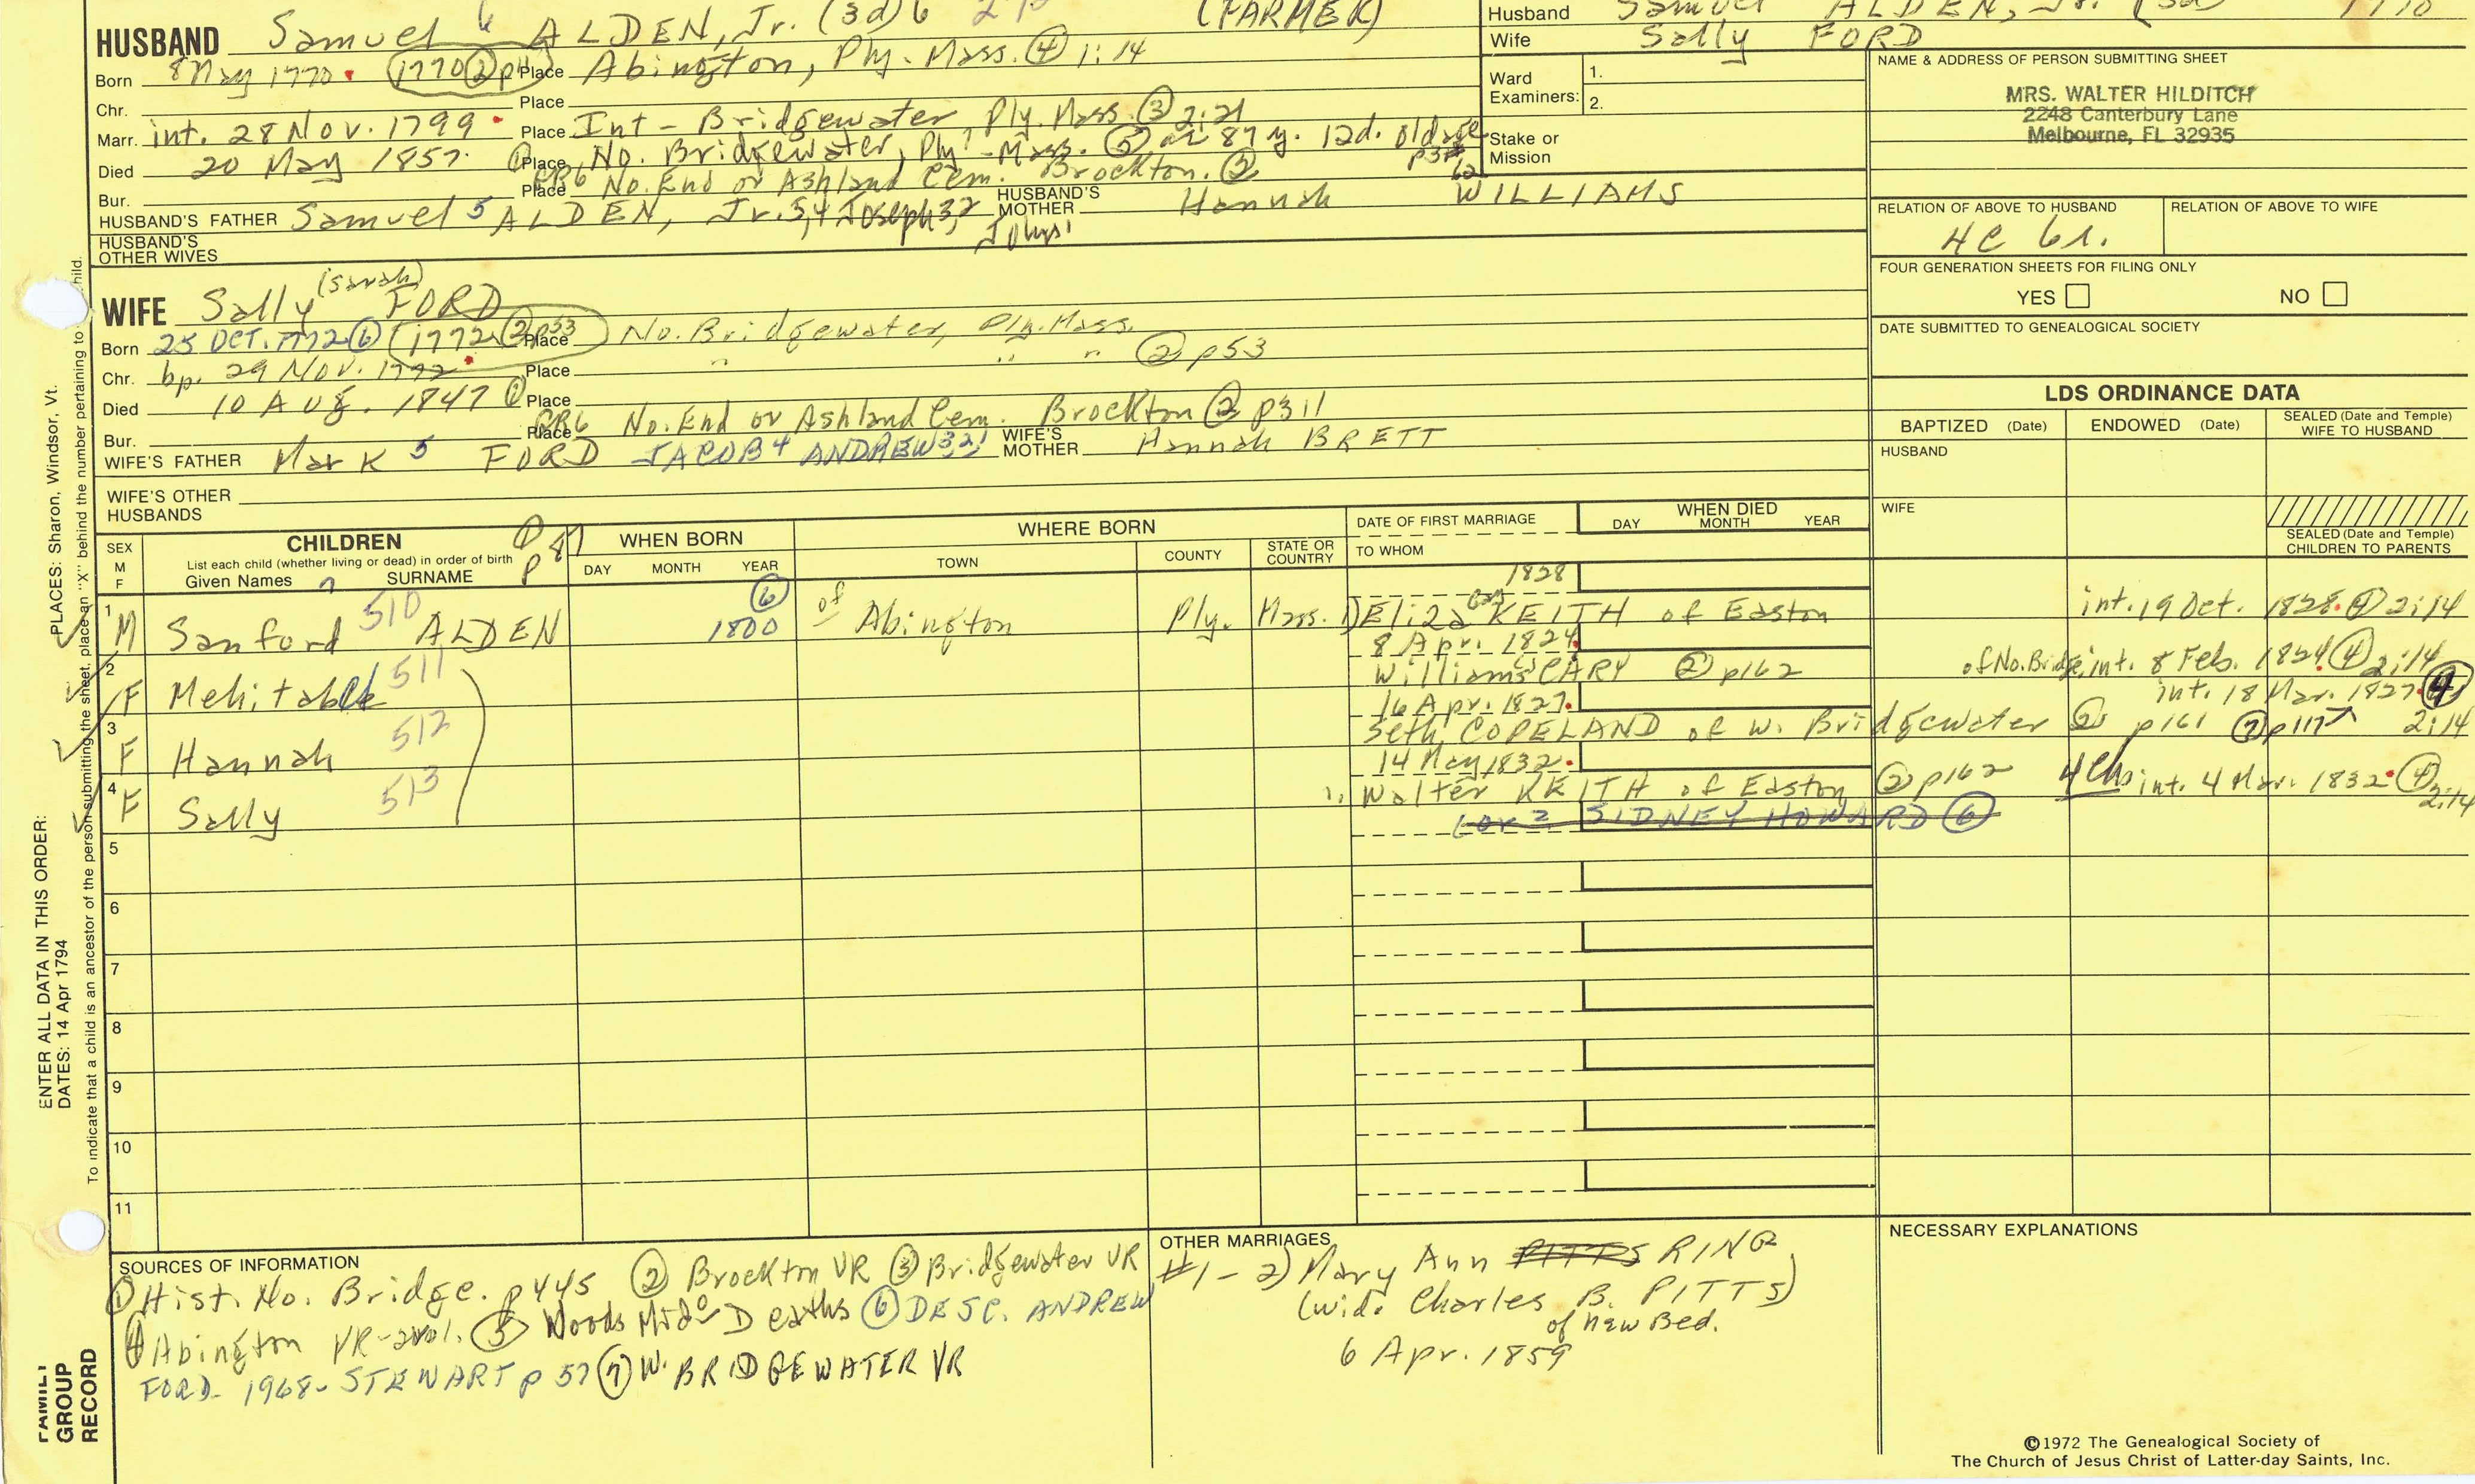 HUSBAND Samuel 6 ALDEN, Jr. (3d) 6 (FARMER)
Born 8 May 1770. (1770 ② Place Abington, Ply. Mass. ④ 1:14
Chr. Place
Marr. int. 28 Nov. 1799 Place Int - Bridgewater Ply. Mass. ③ 2:21
Died 20 May 1857. ① Place No. Bridgewater, Ply Mass. ⑤ 87 y. 12d. old age
Bur. Place GR6 No. End or Ashland Cem. Brockton. ②
HUSBAND'S FATHER Samuel 5 ALDEN, Jr. 5,4 Joseph 3,2 John 1 HUSBAND'S MOTHER Hannah WILLIAMS
HUSBAND'S OTHER WIVES
Husband Samuel ALDEN, Jr. (3d) 1770
Wife Sally FORD
Ward Examiners: 1.
2.
Stake or Mission
NAME & ADDRESS OF PERSON SUBMITTING SHEET
MRS. WALTER HILDITCH
2248 Canterbury Lane
Melbourne, FL 32935
RELATION OF ABOVE TO HUSBAND RELATION OF ABOVE TO WIFE
4C 6r.
FOUR GENERATION SHEETS FOR FILING ONLY
YES NO
DATE SUBMITTED TO GENEALOGICAL SOCIETY
WIFE Sally (Sarah) FORD
Born 25 OCT. 1772 ⑥ (1772 ② p53 Place No. Bridgewater, Ply. Mass.
Chr. bp. 29 Nov. 1772 Place " " " ② p53
Died 10 Aug. 1847 ① Place
Bur. Place GR6 No. End or Ashland Cem. Brockton ② p311
WIFE'S FATHER Mark 5 FORD JACOB 4 ANDREW 3,2,1 WIFE'S MOTHER Hannah BRETT
WIFE'S OTHER HUSBANDS
LDS ORDINANCE DATA
BAPTIZED (Date) ENDOWED (Date) SEALED (Date and Temple) WIFE TO HUSBAND
HUSBAND
WIFE
SEALED (Date and Temple) CHILDREN TO PARENTS
SEX M F
CHILDREN
List each child (whether living or dead) in order of birth
Given Names SURNAME
WHEN BORN
DAY MONTH YEAR
WHERE BORN
TOWN COUNTY STATE OR COUNTRY
DATE OF FIRST MARRIAGE
TO WHOM
WHEN DIED
DAY MONTH YEAR
1 M Sanford 510 ALDEN ⑥ 1800 of Abington Ply. Mass. 1828
1) Eliza KEITH of Easton int. 19 Oct. 1828. ④ 2:14
2 F Mehitable 511 8 Apr. 1824.
Williams CARY ② p162 of No. Bridge, int. 8 Feb. 1824 ④ 2:14
3 F Hannah 512 16 Apr. 1827. int. 18 Mar. 1827. ④
Seth COPELAND of W. Bridgewater ② p161 ⑦ p117 2:14
4 F Sally 513 14 May 1832.
1. Walter KEITH of Easton ② p162 4 Ch. int. 4 Mar. 1832. ④ 2:14
(or 2 SIDNEY HOWARD ⑥
5
6
7
8
9
10
11
SOURCES OF INFORMATION
① Hist. No. Bridge. p445 ② Brockton VR ③ Bridgewater VR
④ Abington VR-2vol. ⑤ Woods Mid Deaths ⑥ DESC. ANDREW
FORD. 1968- STEWART p 57 ⑦ W. BRIDGEWATER VR
OTHER MARRIAGES
#1 - 2) Mary Ann PITTS RING
(wid. Charles B. PITTS)
of New Bed.
6 Apr. 1859
NECESSARY EXPLANATIONS
©1972 The Genealogical Society of
The Church of Jesus Christ of Latter-day Saints, Inc.
ENTER ALL DATA IN THIS ORDER:
DATES: 14 Apr 1794
PLACES: Sharon, Windsor, Vt.
To indicate that a child is an ancestor of the person submitting the sheet, place an "X" behind the number pertaining to child.
FAMILY
GROUP
RECORD